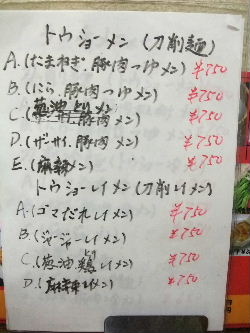 トウショーメン(刀削麺)
A.(たまねぎ,豚肉つゆメン) ¥750
B.(にら,豚肉つゆメン) ¥750
C.(葱油とりメン) ¥750
D.(ザーサイ,豚肉メン) ¥750
E.(麻辣メン) ¥750
トウショーレイメン(刀削レイメン)
A.(ゴマだれレイメン) ¥750
B.(ジャージャーレイメン) ¥750
C.(葱油鶏とりレイメン) ¥750
D.(麻辣レイメン) ¥750